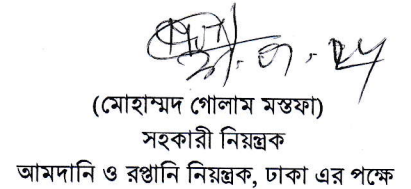 (মোহাম্মদ গোলাম মস্তফা)
সহকারী নিয়ন্ত্রক
আমদানি ও রপ্তানি নিয়ন্ত্রক, ঢাকা এর পক্ষে